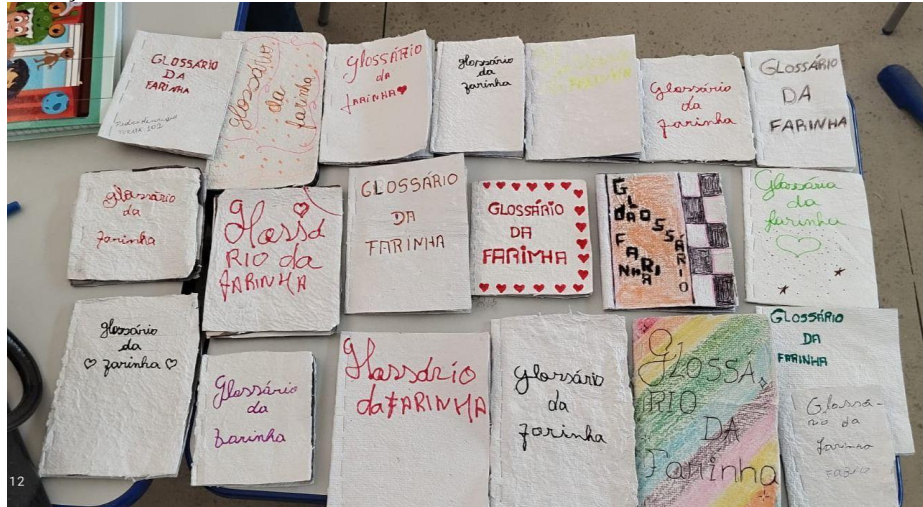 GLOSSÁRIO
DA
FARINHA
TURMA 102
glossário
da
farinha
glossário
da
FARINHA
glossário
da
farinha
FARINHA
Glossário
da
farinha
GLOSSÁRIO
DA
FARINHA
glossário
da
farinha
Glossá
RIO da
FARINHA
GLOSSÁRIO
DA
FARINHA
GLOSSÁRIO
DA
FARINHA
GLOSSÁRIO
DA
FARINHA
Glossária
da
farinha
glossário
da
farinha
Glossário
da
farinha
Glossário
da FARINHA
glossário
da
farinha
GLOSSÁ
RIO
DA
Farinha
GLOSSÁRIO
DA
FARINHA
Glossá-
rio da
farinha
FABIO
12